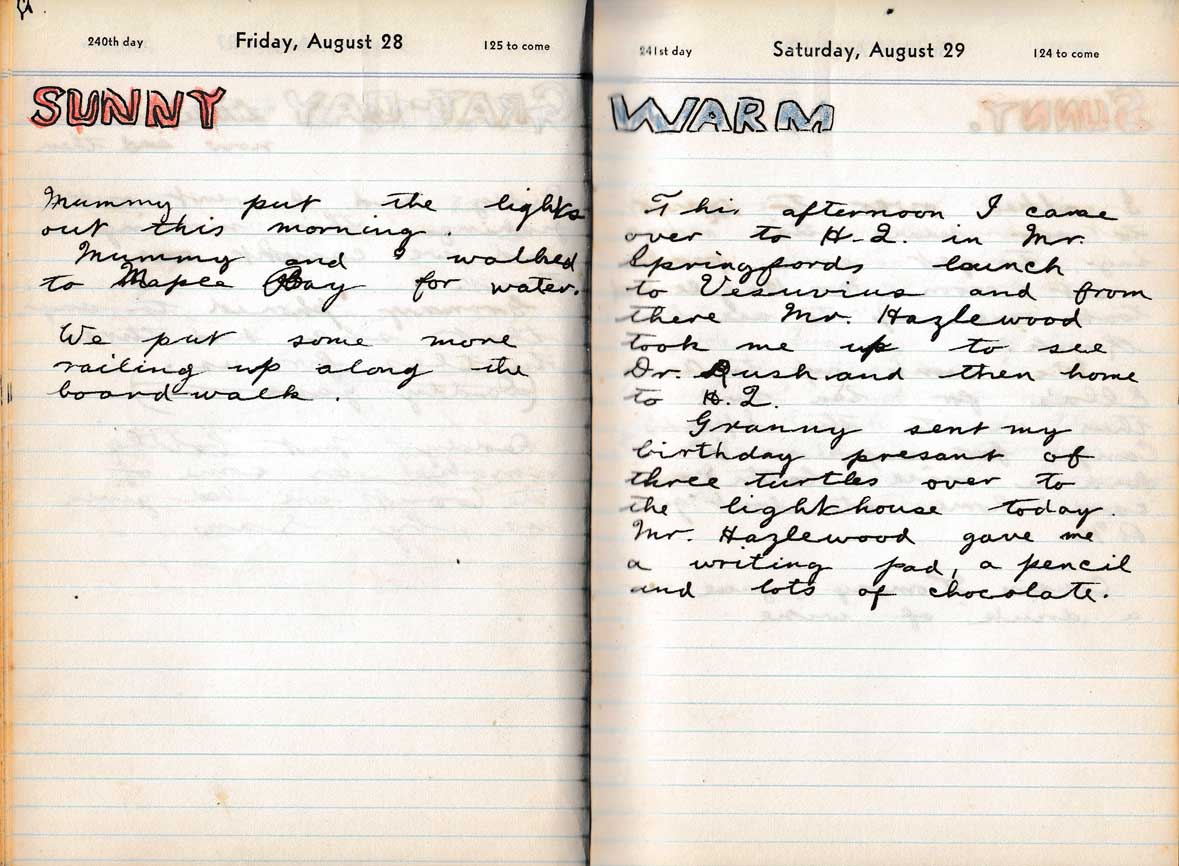 240th day Friday, August 28 125 to come
SUNNY
Mummy put the lights
out this morning.
Mummy and I walked
to Maple Bay for water.
We put some more
railing up along the
board walk.
241st day Saturday, August 29 124 to come
WARM
This afternoon I came
over to H.Q. in Mr.
Springfords launch
to Vesuvius and from
there Mr. Hazlewood
took me up to see
Dr. Rush and then home
to H.Q.
Granny sent my
birthday present of
three turtles over to
the lighthouse today.
Mr. Hazlewood gave me
a writing pad, a pencil
and lots of chocolate.